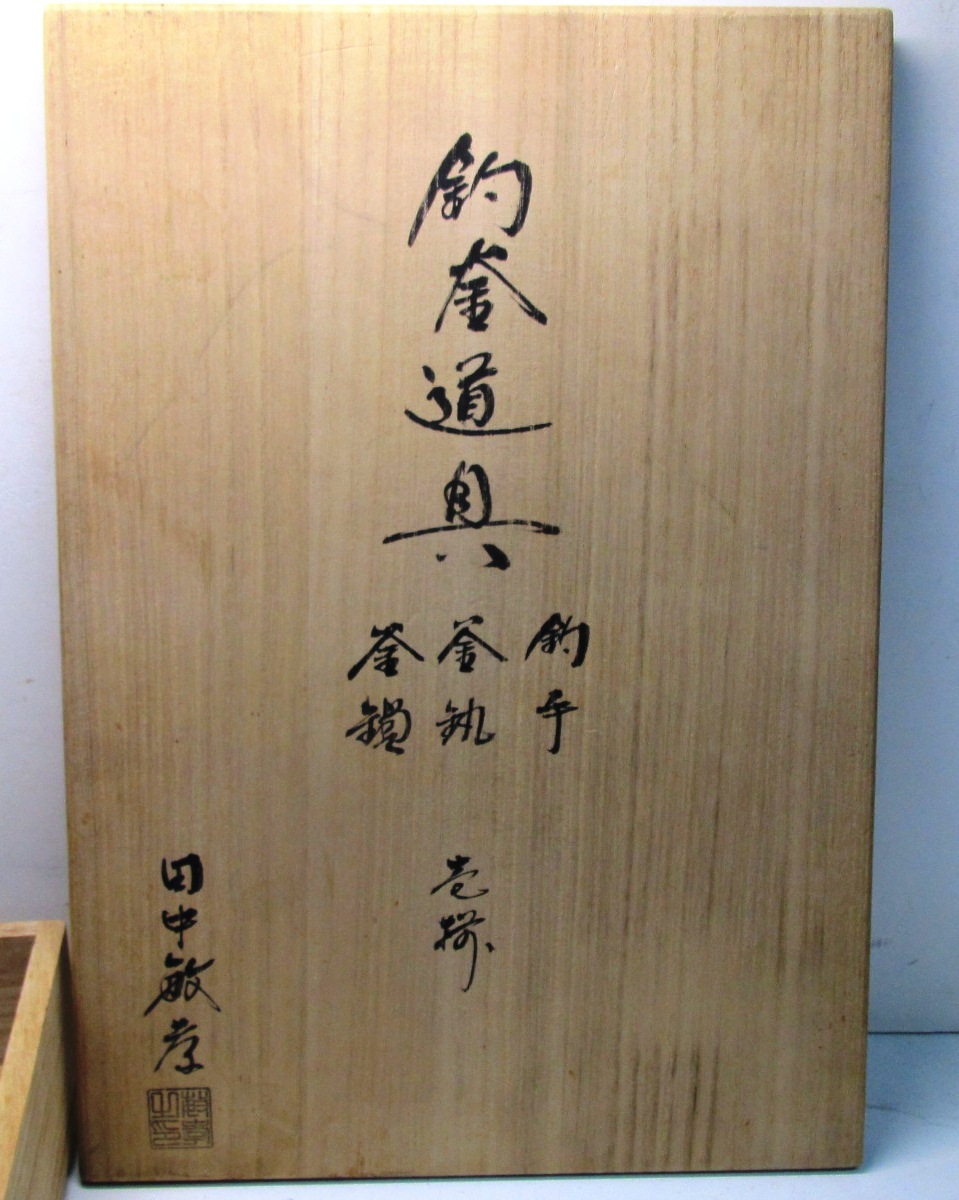 釣釜道具
釣手
釜釻
釜鎖
壱揃
田中敏孝